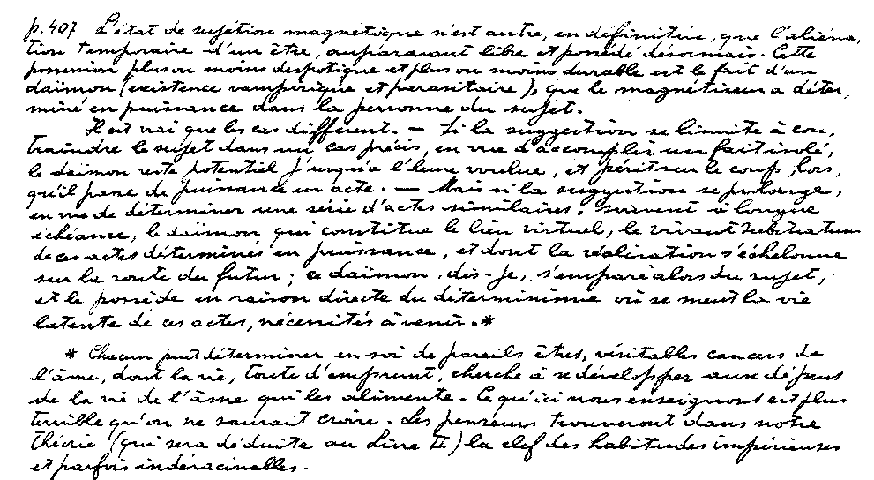 p. 407 L'état de sujétion magnétique n'est autre, en définitive, que l'aliéna,
tion temporaire d'un être, auparavant libre et possédé désormais. Cette
possession plus ou moins despotique et plus ou moins durable est le fait d'un
daïmon (existence vampirique et parasitaire), que le magnétiseur a déter,
miné en puissance dans la personne du sujet.
Il est vrai que les cas diffèrent. — Si la suggestion se limite à con,
traindre le sujet dans un cas précis, en vue d'accomplir un fait isolé,
le daïmon reste potentiel jusqu'à l'heure voulue, et périt sur le coup, lors,
qu'il passe de puissance en acte. — Mais si la suggestion se prolonge,
en vue de déterminer une série d'actes similaires, souvent à longue
échéance, le daïmon qui constitue le lien virtuel, le vivant substratum
de ces actes déterminés en puissance, et dont la réalisation s'échelonne
sur la route du futur; ce daïmon, dis-je, s'empare alors du sujet,
et le possède en raison directe du déterminisme où se meut la vie
latente de ces actes, nécessités à venir. *
* Chacun peut déterminer en soi de pareils êtres, véritables cancers de
l'âme, dont la vie, toute d'emprunt, cherche à se développer aux dépens
de la vie de l'âme qui les alimente. Ce qu'ici nous enseignons est plus
terrible qu'on ne saurait croire. Les penseurs trouveront dans notre
théorie (qui sera déduite au Livre II) la clef des habitudes impérieuses
et parfois indéracinables.